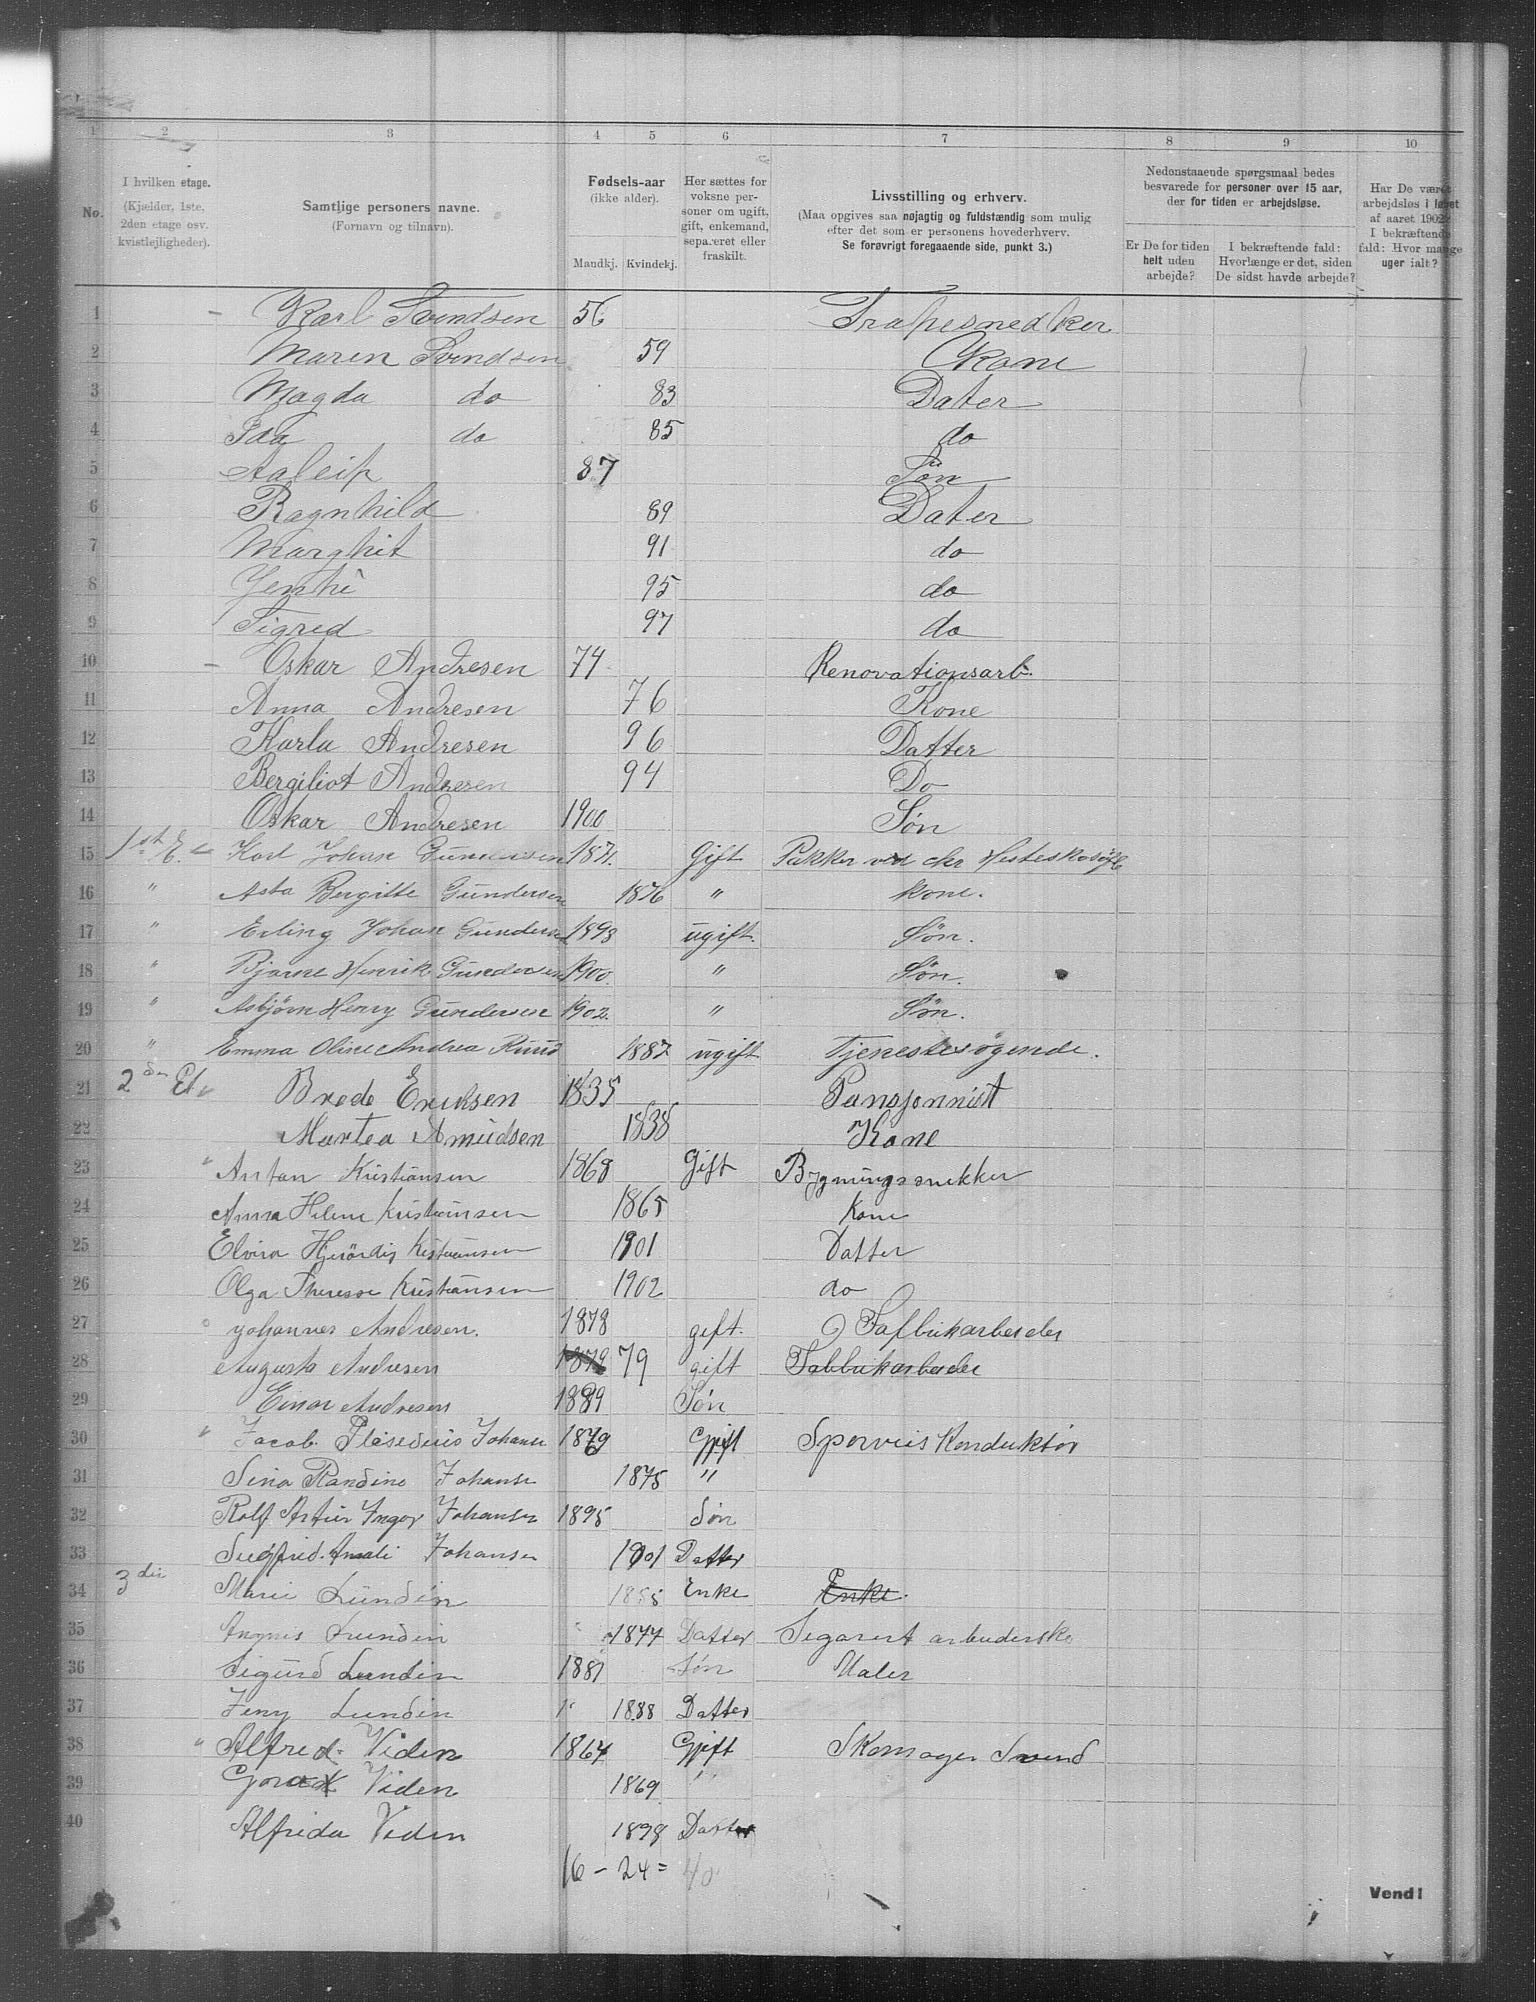 1 2 3 4 5 6 7 8 9 10
No.
I hvilken etage.
(Kjælder, 1ste, 2den etage osv. kvistlejligheder).
Samtlige personers navne.
(Fornavn og tilnavn).
Fødsels-aar
(ikke alder).
Mandkj. Kvindekj.
Her sættes for voksne personer om ugift, gift, enkemand, separeret eller fraskilt.
Livsstilling og erhverv.
(Maa opgives saa nøjagtig og fuldstændig som mulig efter det som er personens hovederhverv.
Se forøvrigt foregaaende side, punkt 3.)
Nedenstaaende spørgsmaal bedes besvarede for personer over 15 aar, der for tiden er arbejdsløse.
Er De for tiden helt uden arbejde?
I bekræftende fald: Hvorlænge er det, siden De sidst havde arbejde?
Har De været arbejdsløs i løbet af aaret 1902? I bekræftende fald: Hvor mange uger ialt?
1 – Karl Svendsen 56
2 Maren Svendsen 59 Kone
3 Magda do 83 Dater
4 Ida do 85 do
5 87 Søn
6 Ragnhild 89 Dater
7 Marghit 91 do
8 95 do
9 Sigred 97 do
10 – Oskar Andresen 74 Renovationsarb.
11 Anna Andresen 76 Kone
12 Karla Andresen 96 Datter
13 Bergiliot Andresen 94 Do
14 Oskar Andresen 1900 Søn
15 1st E. Karl Johan Gundersen 1871. Gift Pakker ved chr
16 " Asta Bergitte Gundersen 1876 " kone.
17 " Erling Johan Gundersen 1898 ugift. Søn.
18 " Bjarne Henrik Gundersen 1900. " Søn.
19 " Asbjörn Henry Gundersen 1902. " Søn.
20 " Emma Oline Andrea Ruud 1887 ugift Tjenestesøgende.
21 2den Et. Brede Eriksen 1835 Pansjonnist
22 Martea Amudsen 1838 Kone
23 " Anton Kristiansen 1868 Gift Bygningssnekker
24 Anna Helene Kristiansen 1865 Kone
25 Elvira Hjørdis Kristiansen 1901 Datter
26 Olga Therese Kristiansen 1902 do
27 Johannes Andresen. 1878 gift. Fabrikarbeider
28 Augusta Andresen 1879 79 gift Fabbrikarbeider
29 Einar Andresen 1899 Søn
30 " Jacob Johanse 1879 Gjift Sporveis Konduktör
31 Sina Randine Johanse 1875 "
32 Rolf Artur Ingor Johansen 1895 Søn
33 Amali Johansen 1901 Datter
34 3die Marie Lundin 1855 Enke Enke.
35 Angnis Lundin 1877 Datter Segarert arbuderske
36 Sigurd Lundin 1881 Søn Maler
37 Jeny Lundin 1888 Datter
38 " Alfred Viden 1864 Gjift Skomager Svend
39 Viden 1869 "
40 Alfrida Viden 1898 Datter
16 – 24 = 40
Vend!